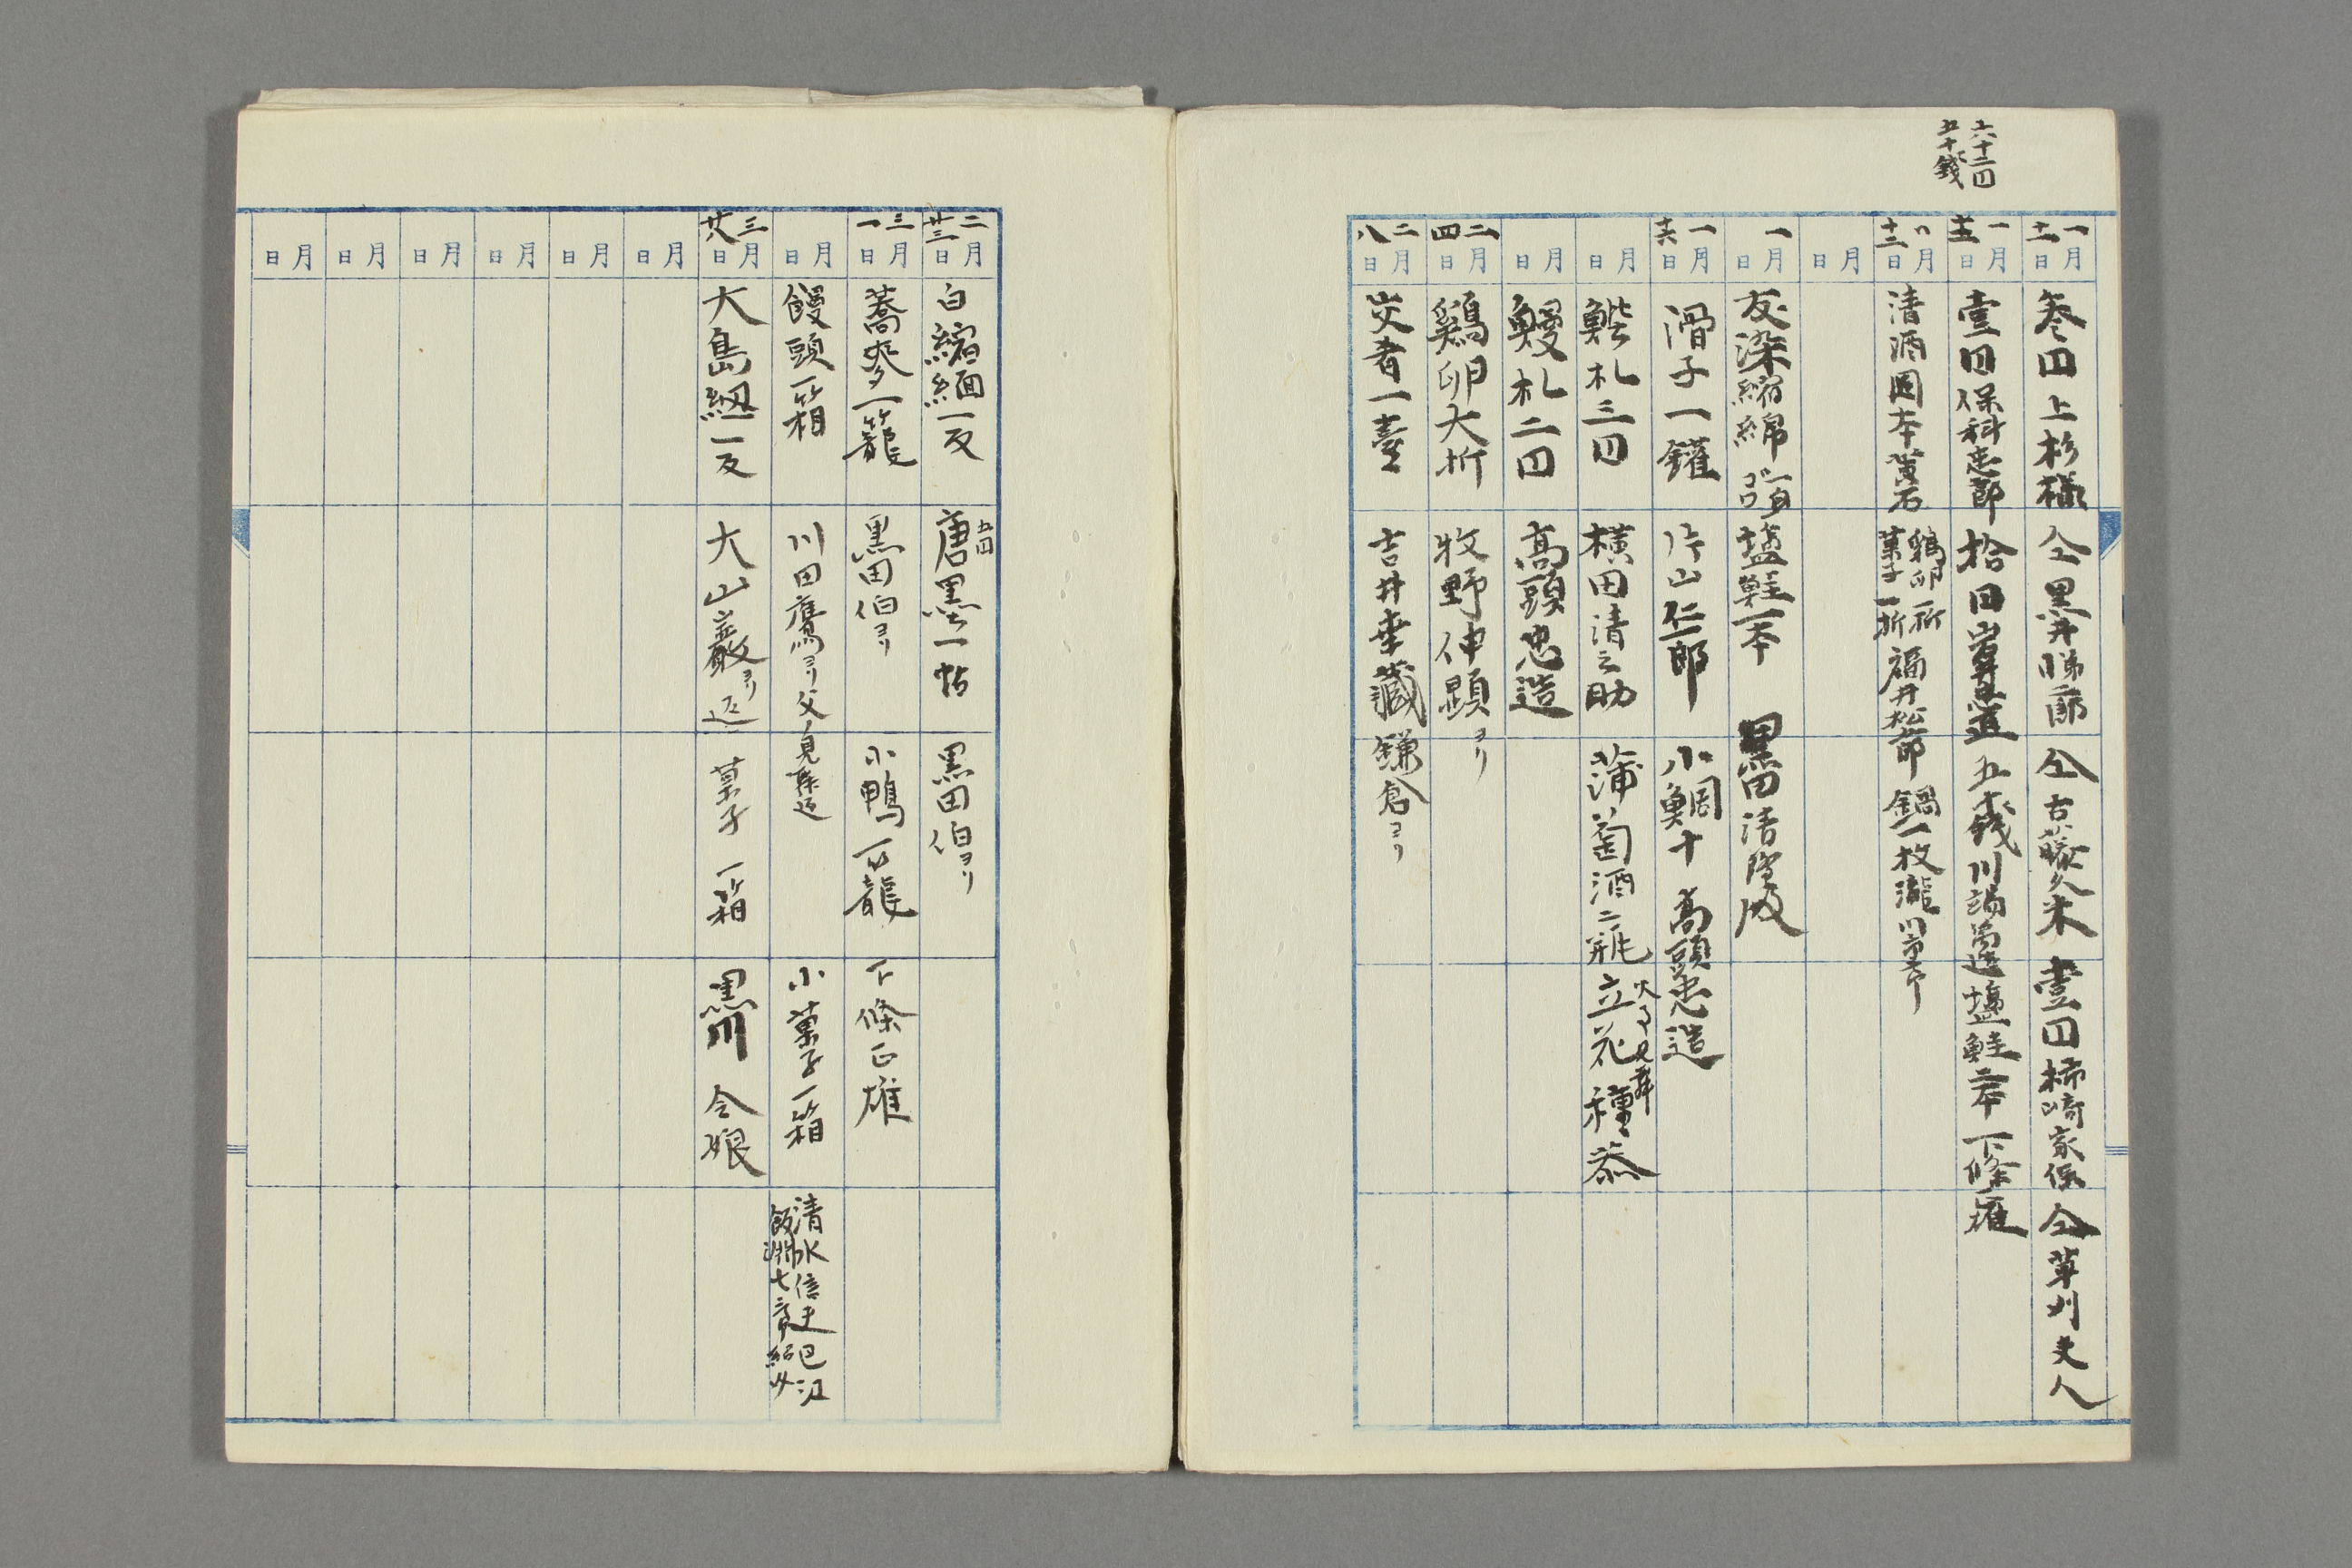 六十二円
五十銭
一月十一日 参円 上杉様 仝 黒井悌二郎 仝 古藤久米 壹円 柿崎家保 仝 草刈夫人
一月十五日 壹円 保科忠郎 拾円 五十銭 川端 塩鮭二本 下條
〃月十二日 清酒 岡本黄石 鶏卵一折 菓子一折 福井松郎 鍋一枚 瀧川
月 日
一月 日 友染縮緬 塩鮭一本 黒田清隆
一月十六日 滑子一鑵 片山仁一郎 小鯛十 高頭忠造
月 日 鮓札三円 横田清之助 蒲萄酒二瓶 立花種恭
月 日 鰻札二円 高頭忠造
二月四日 鷄卵大折 牧野伸顕ヨリ
二月八日 交肴一臺 吉井幸蔵 鎌倉ヨリ
二月廿三日 白縮緬一反 五円 唐墨一帖 黒田伯ヨリ
三月一日 蕎麥一籠 黒田伯ヨリ 小鴨一籠 下條正雄
月 日 饅頭一箱 川田鷹ヨリ父ノ見 小菓子一箱 清水信夫
飯淵七三郎紹
三月廿八日 大島紬一反 大山巖ヨリ返 菓子一箱 黒川令娘
月 日
月 日
月 日
月 日
月 日
月 日